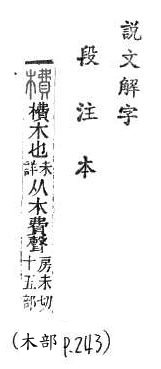 說文解字
段注本
橨 橨木也未詳从木費聲房未切十五部
(木部 p.243)